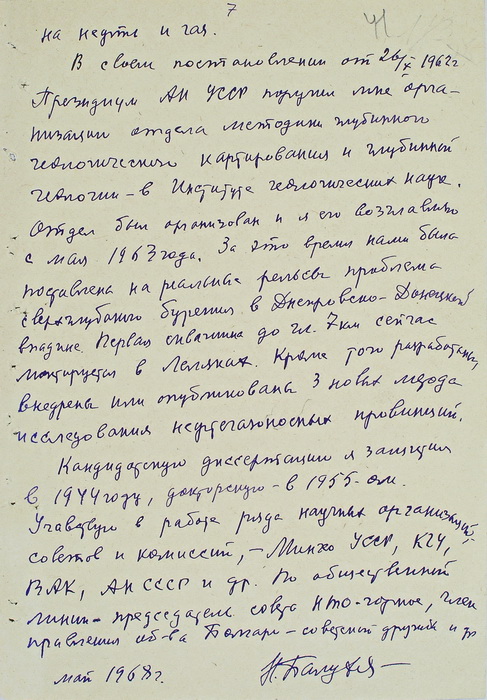 7
41
на нефть и газ.
В своем постановлении от 26/X 1962г
Президиум АН УССР поручил мне орга-
низацию отдела методики глубинного
геологического картирования и глубинной
геологии – в Институте геологических наук.
Отдел был организован и я его возглавляю
с мая 1963 года. За это время нами была
поставлена на реальные рельсы проблема
сверхглубокого бурения в Днепровско-Донецкой
впадине. Первая скважина до гл. 7 км сейчас
монтируется в Леляках. Кроме того разработаны,
внедрены или опубликованы 3 новых метода
исследования нефтегазоносных провинций.
Кандидатскую диссертацию я защитил
в 1944 году, докторскую – в 1955-ом.
Участвую в работе ряда научных организаций,
советов и комиссий, – Мингео УССР, КГУ,
ВАК, АН СССР и др. По общественной
линии – председатель совета НТО-горное, член
правления об-ва Болгаро-советской дружбы и др
май 1968г.